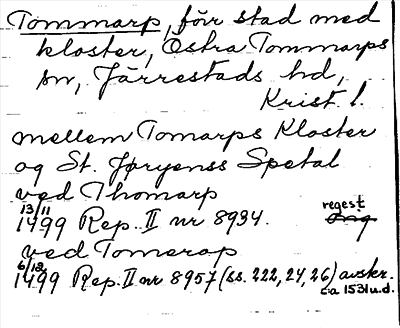 Tommarp, förr stad med
kloster, Östra Tommarps
sn, Järrestads hd,
Krist. l.
mellem Tomarps Kloster
og St. Jøryenss Spetal
ved Thomarp
13/11 1499 Rep. II nr 8934. regest
ved Tomerop
6/12 1499 Rep. II nr 8957 (ss. 222, 24, 26) avskr.
ca 1531 u.d.